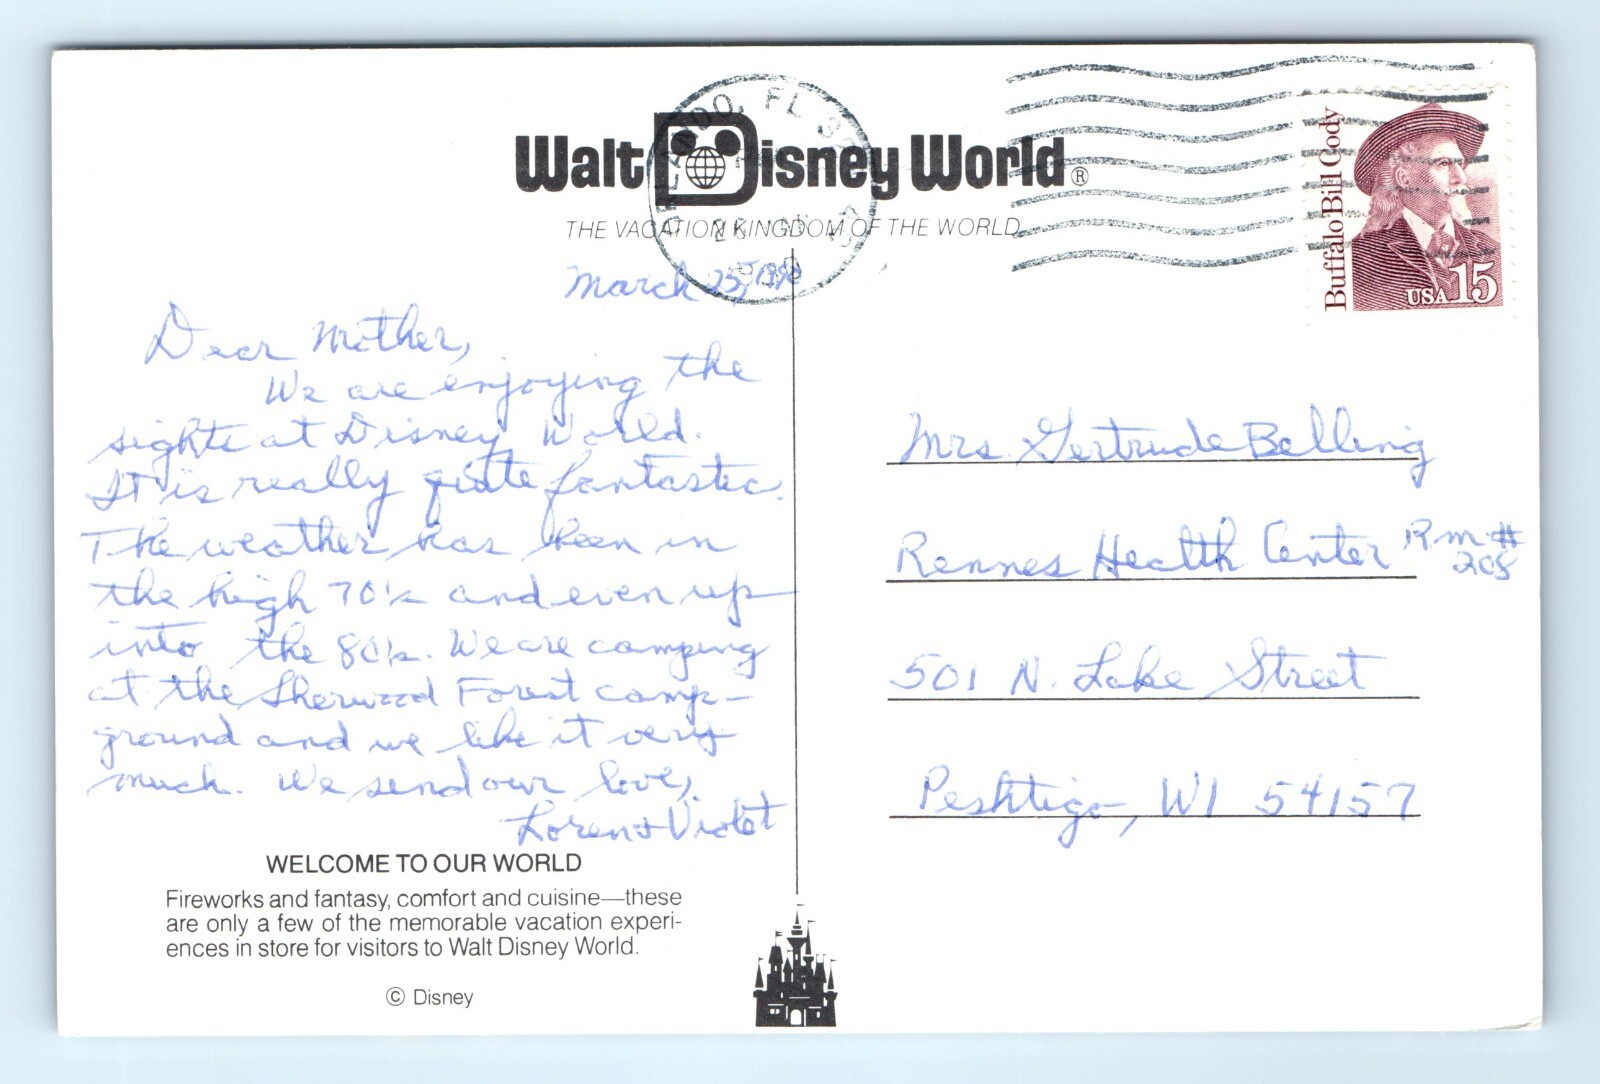 Walt Disney World®
THE VACATION KINGDOM OF THE WORLD
ORLANDO, FL 32
Buffalo Bill Cody
USA 15
March 25, 1990
Dear Mother,
We are enjoying the
sights at Disney World.
It is really quite fantastic.
The weather has been in
the high 70's and even up
into the 80's. We are camping
at the Sherwood Forest camp-
ground and we like it very
much. We send our love,
Loren & Violet
Mrs. Gertrude Belling
Rennes Health Center Rm #
208
501 N. Lake Street
Peshtigo, WI 54157
WELCOME TO OUR WORLD
Fireworks and fantasy, comfort and cuisine—these
are only a few of the memorable vacation experi-
ences in store for visitors to Walt Disney World.
© Disney